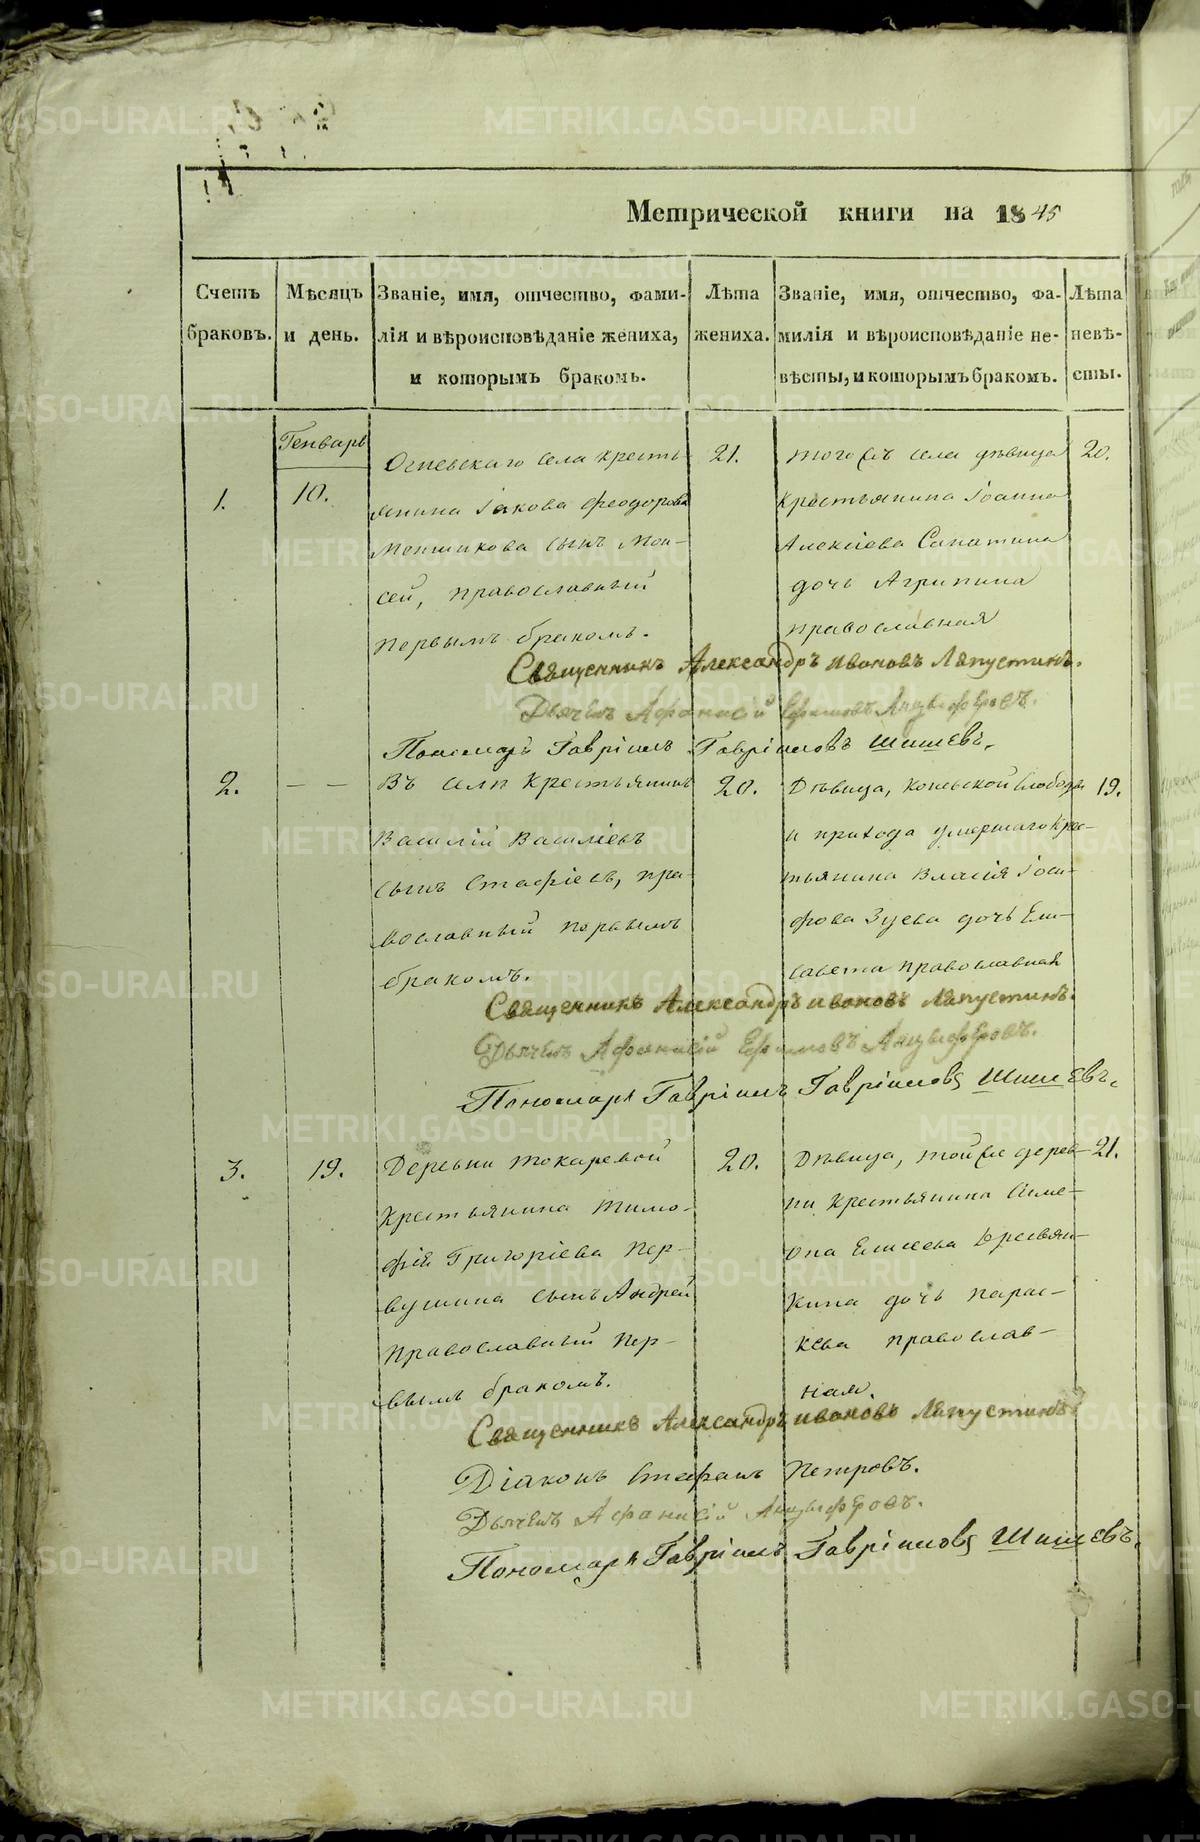 Метрической книги на 1845
Счетъ браковъ.
Мѣсяцъ и день.
Званіе, имя, отчество, фами-
лія и вѣроисповѣданіе жениха,
и которымъ бракомъ.
Лѣта
жениха.
Званіе, имя, отчество, фа-
милія и вѣроисповѣданіе не-
вѣсты, и которымъ бракомъ.
Лѣта
невѣ-
сты.
Генварь
1.
10.
Огневскаго села кресть-
янина Іакова Феодорова
Меншикова сынъ Мои-
сей, православный
первымъ бракомъ.
21.
того же села дѣвица
Крестьянина Іоанна
Алексіева Сапатина
дочь Агрипина
православная
20.
Священникъ Александръ Ивановъ Ляпустинъ.
Дьячекъ Афанасій Ефимовъ Анцыферовъ.
Пономарь Гавріилъ Гавріиловъ Шишевъ.
2.
— —
Въ селѣ Крестьянинъ
Василій Васильевъ
сынъ Стафіевъ, пра-
вославный первымъ
бракомъ.
20.
Дѣвица, Коневской слободы
и прихода умершаго Крес-
тьянина Власія Іоси-
фова Зуева дочь Ели-
савета православная
19.
Священникъ Александръ Ивановъ Ляпустинъ.
Дьячекъ Афанасій Ефимовъ Анцыферовъ.
Пономарь Гавріилъ Гавріиловъ Шишевъ.
3.
19.
Деревни Токаревой
Крестьянина Тимо-
фія Григоріева Пер-
вушина сынъ Андрей
Православный пер-
вымъ бракомъ.
20.
Дѣвица, той же дерев-
ни Крестьянина Симе-
она Елисеева Дресвян-
кина дочь Парас-
кева православ-
ная.
21.
Священникъ Александръ Ивановъ Ляпустинъ
Діаконъ Стефанъ Петровъ.
Дьячекъ Афанасій Анцыферовъ.
Пономарь Гавріилъ Гавріиловъ Шишевъ.
METRIKI.GASO-URAL.RU